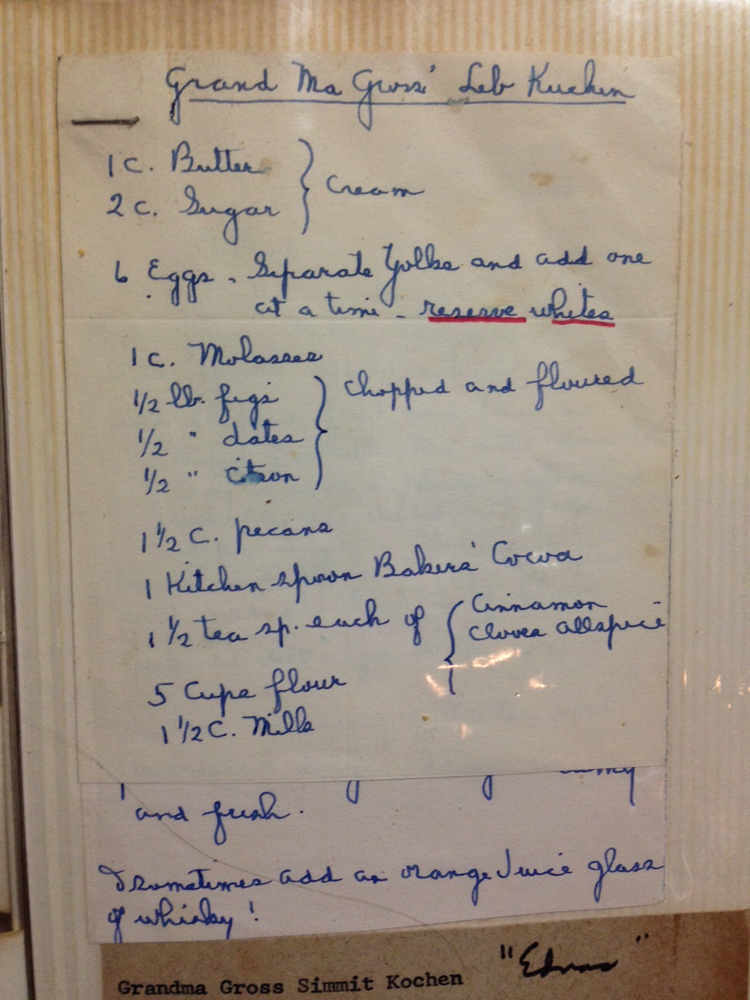 Grand Ma Gross' Leb Kuchen
1 c. Butter
2 c. Sugar } Cream
6 Eggs - Separate Yolks and add one
at a time - reserve whites
1 c. Molasses
1/2 lb. figs } Chopped and floured
1/2 " dates
1/2 " citron
1 1/2 C. pecans
1 Kitchen spoon Bakers' Cocoa
1 1/2 tea sp. each of { Cinnamon
Cloves allspice
5 Cups flour
1 1/2 C. Milk
and fresh.
I sometimes add an orange Juice glass
of whisky!
"Ednas"
Grandma Gross Simmit Kochen